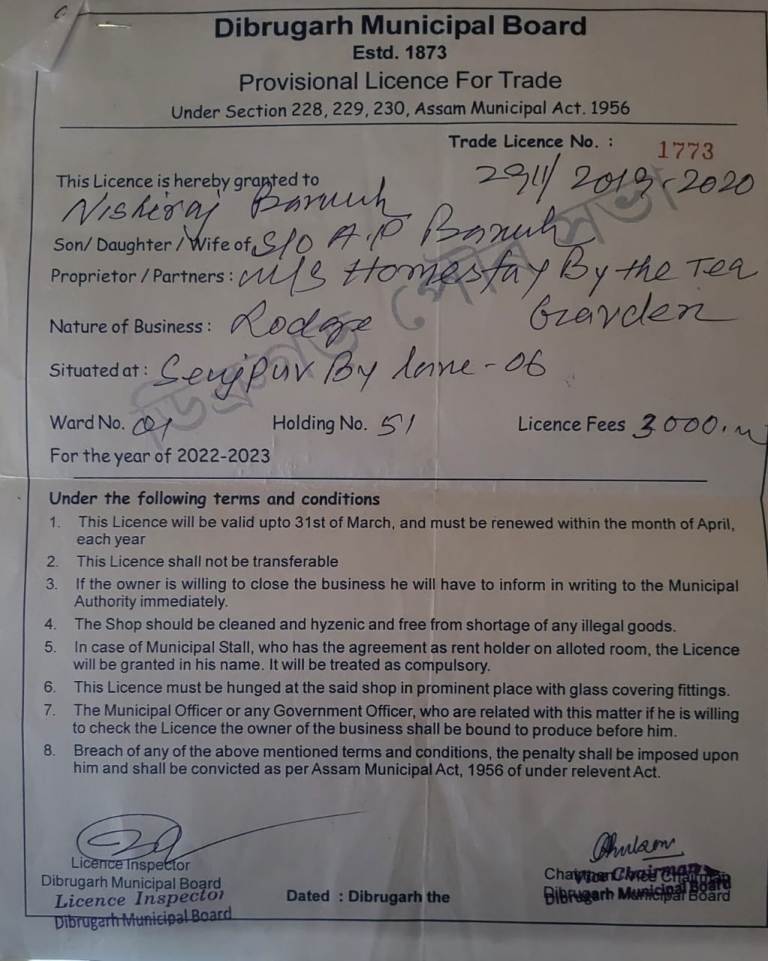 Dibrugarh Municipal Board
Estd. 1873
Provisional Licence For Trade
Under Section 228, 229, 230, Assam Municipal Act. 1956
Trade Licence No. : 1773
2911/2019-2020
This Licence is hereby granted to
Nishiraj Baruah
Son/ Daughter / Wife of S/O A.P Baruah
Proprietor / Partners : M/S Homestay By the Tea
Garden
Nature of Business : Lodge
Situated at : Seujpur By lane - 06
Ward No. 01 Holding No. 51 Licence Fees 3000.
For the year of 2022-2023
ডিব্ৰুগড় পৌৰ সভা
Under the following terms and conditions
1. This Licence will be valid upto 31st of March, and must be renewed within the month of April,
each year
2. This Licence shall not be transferable
3. If the owner is willing to close the business he will have to inform in writing to the Municipal
Authority immediately.
4. The Shop should be cleaned and hyzenic and free from shortage of any illegal goods.
5. In case of Municipal Stall, who has the agreement as rent holder on alloted room, the Licence
will be granted in his name. It will be treated as compulsory.
6. This Licence must be hunged at the said shop in prominent place with glass covering fittings.
7. The Municipal Officer or any Government Officer, who are related with this matter if he is willing
to check the Licence the owner of the business shall be bound to produce before him.
8. Breach of any of the above mentioned terms and conditions, the penalty shall be imposed upon
him and shall be convicted as per Assam Municipal Act, 1956 of under relevent Act.
Licence Inspector
Dibrugarh Municipal Board
Licence Inspector
Dibrugarh Municipal Board
Dated : Dibrugarh the
Chairman
Dibrugarh Municipal Board